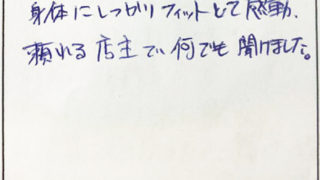 身体にしっかりフィットして感動、
頼れる店主で、何でも聞けました。